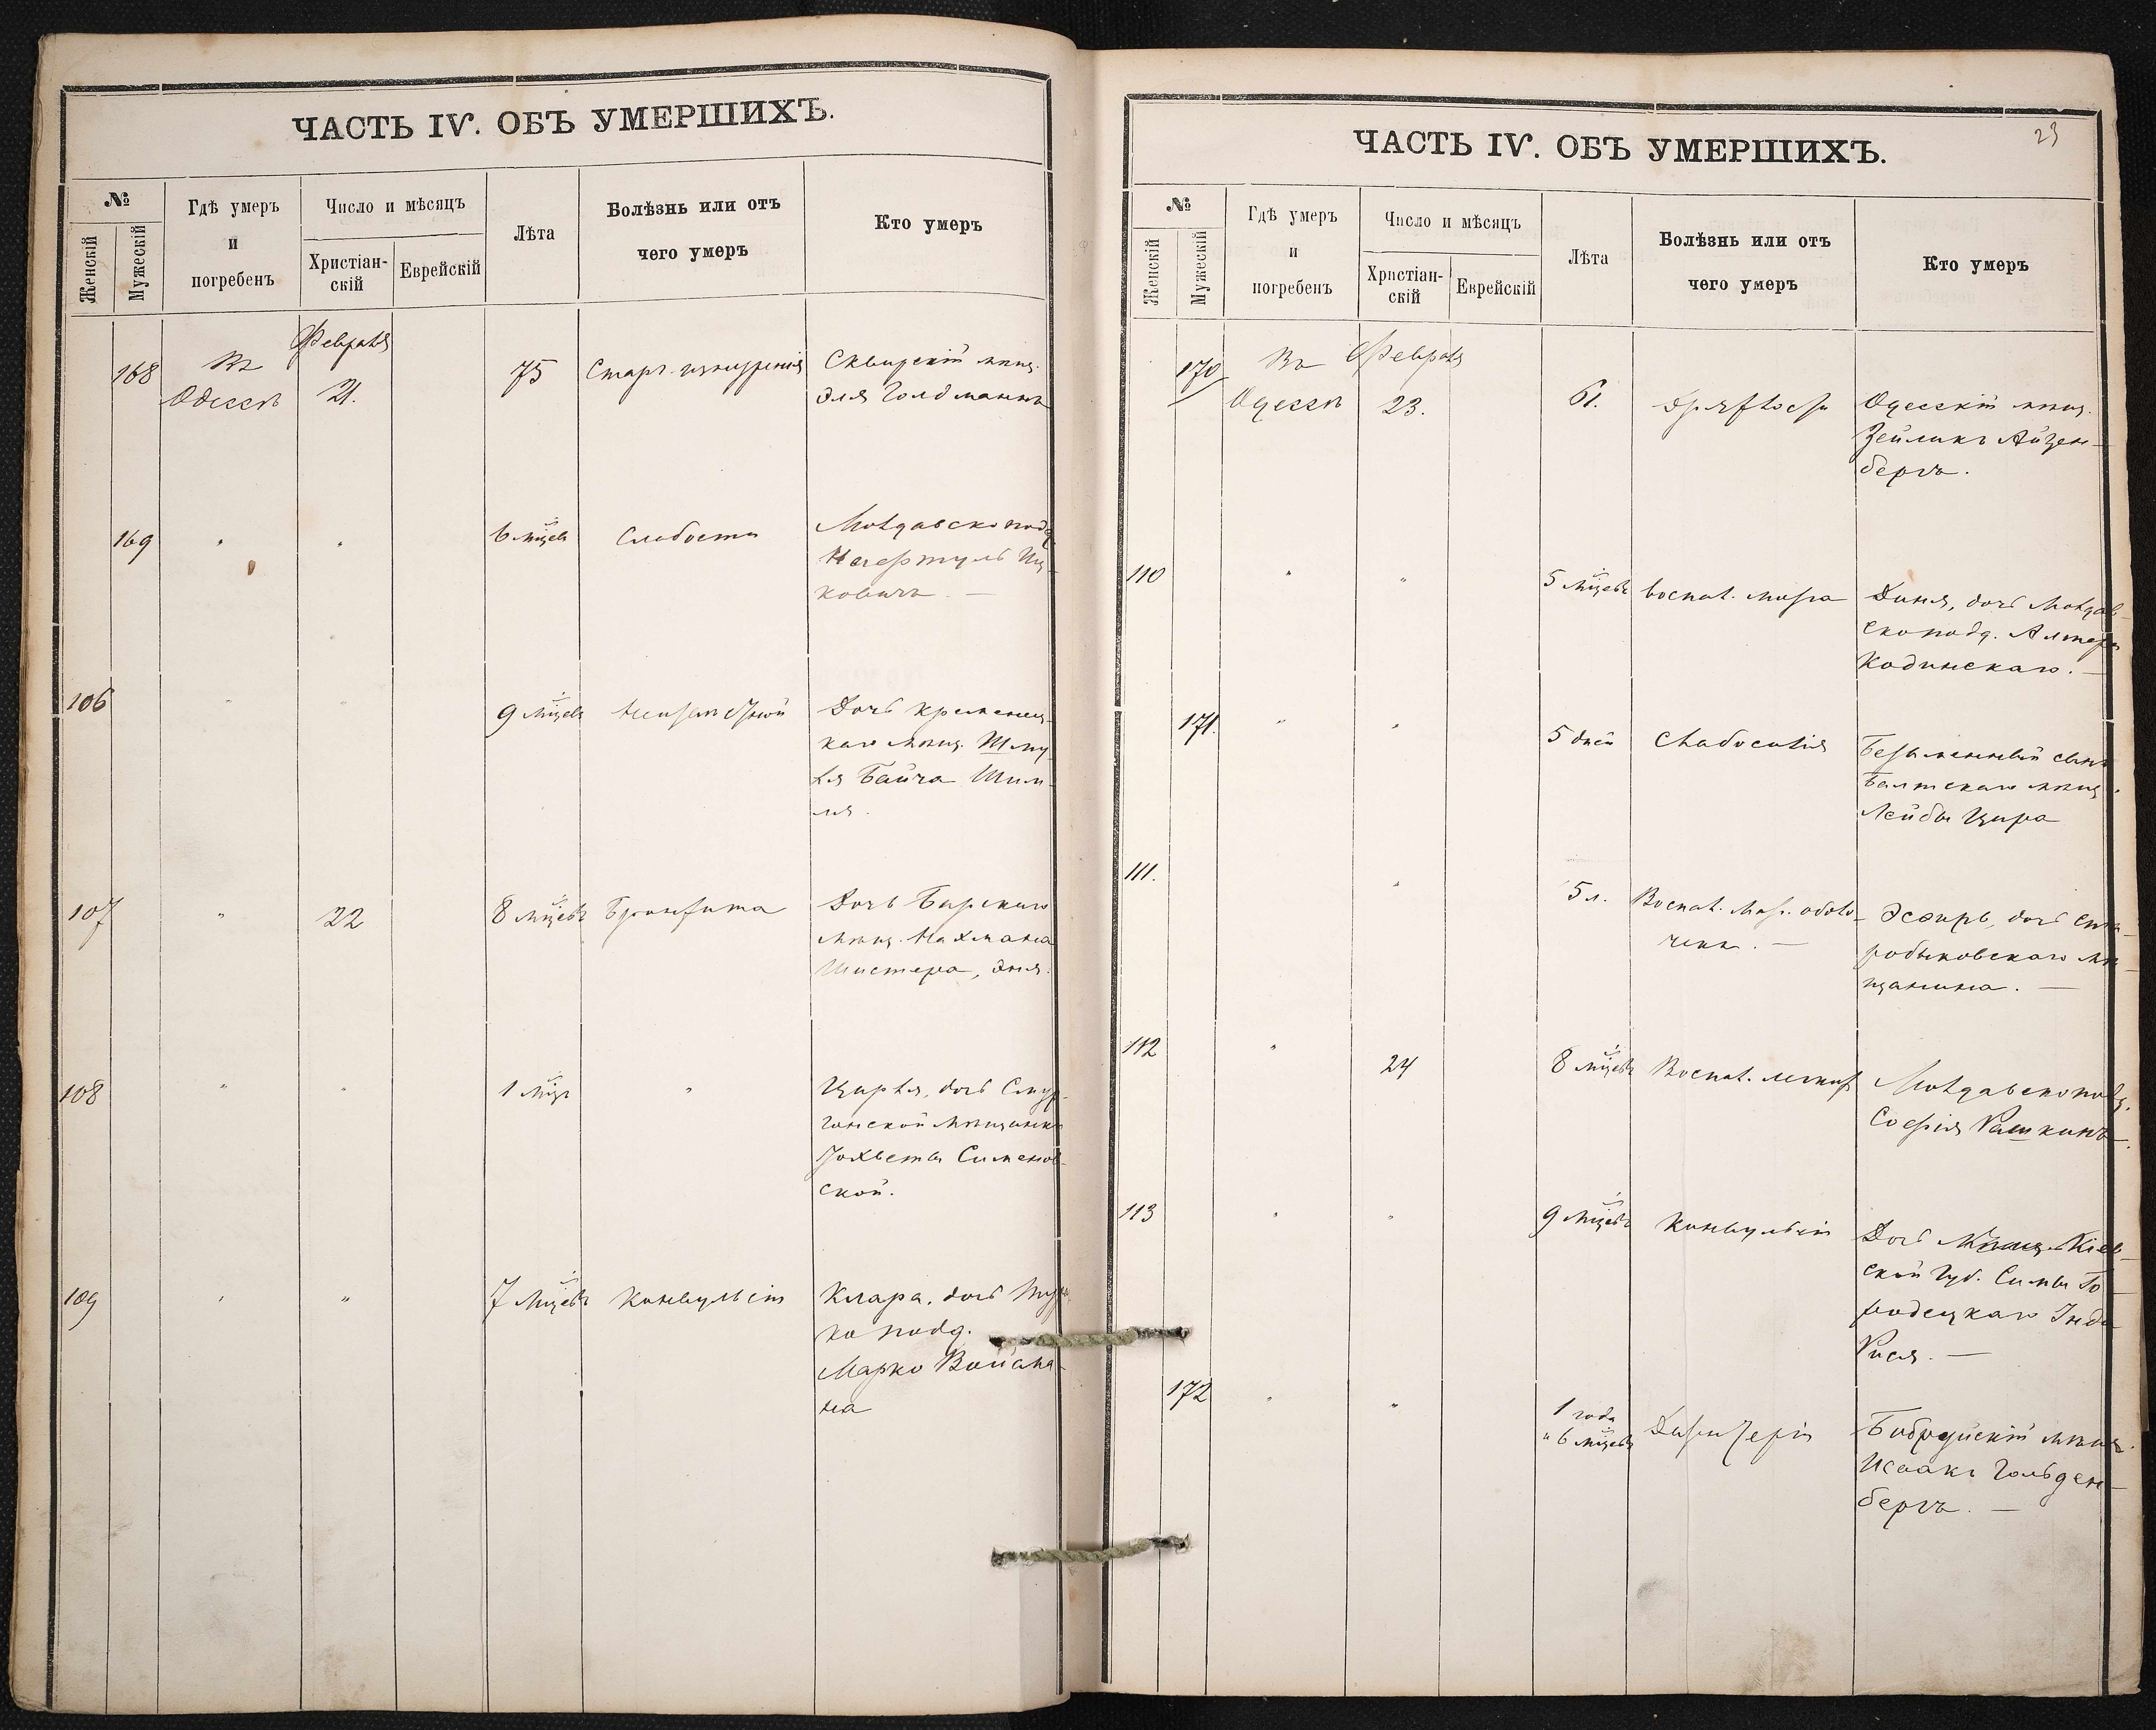 ЧАСТЬ IV. ОБЪ УМЕРШИХЪ.
№
Женскій
Мужескій
Гдѣ умеръ
и
погребенъ
Число и мѣсяцъ
Христіан-
скій
Еврейскій
Лѣта
Болѣзнь или отъ
чего умеръ
Кто умеръ
168
Въ
Одессѣ
Февраля
21.
75
Стар. изнуренія
Сквирскій мѣщ.
Эля Голдманнъ
169
"
"
6 мѣцевъ
Слабости
Молдавскоподд.
Иц-
ковичъ. —
106
"
"
9 мѣцевъ
Дочь Кременец-
каго мѣщ. Шму-
ля Байча Шим-
ля.
107
"
22
8 мѣцевъ
Бронхита
Дочь Барскаго
мѣщ. Нахмана
Шистера, Эня.
108
"
"
1 мѣц.
"
Цирля, дочь Смур-
гонской мѣщанки
Іохветы Сименов-
ской.
109
"
"
7 мѣцевъ
Конвульсіи
Клара, дочь
ко подд.
Марко
на
ЧАСТЬ IV. ОБЪ УМЕРШИХЪ.
23
№
Женскій
Мужескій
Гдѣ умеръ
и
погребенъ
Число и мѣсяцъ
Христіан-
скій
Еврейскій
Лѣта
Болѣзнь или отъ
чего умеръ
Кто умеръ
170
Въ
Одессѣ
Февраля
23.
61.
дряхлости
Одесскій мѣщ.
Зейликъ Айзен-
бергъ.
110
"
"
5 мѣцевъ
воспал. мозга
Диня, дочь Молдав-
скоподд. Алтера
Кодинскаго. —
171.
"
"
5 дней
слабосилія
Безыменный сынъ
Балтскаго мѣщ.
Лейбы Цира
111.
"
5 л.
Воспал. мозг. оболо-
чекъ. —
Эсѳирь, дочь Ста-
робыховскаго мѣ-
щанина. —
112
"
24
8 мѣцевъ
Воспал. легкихъ
Молдавскоподд.
Софія Рашкинъ.
113
"
"
9 мѣцевъ
Конвульсіи
Дочь мѣщ. Кіев-
ской губ. Симы Го-
родецкаго
Рися. —
172
"
"
1 года
и 6 мѣцевъ
Дизентеріи
Бобруйскій мѣщ.
Исаакъ Гольден-
бергъ. —